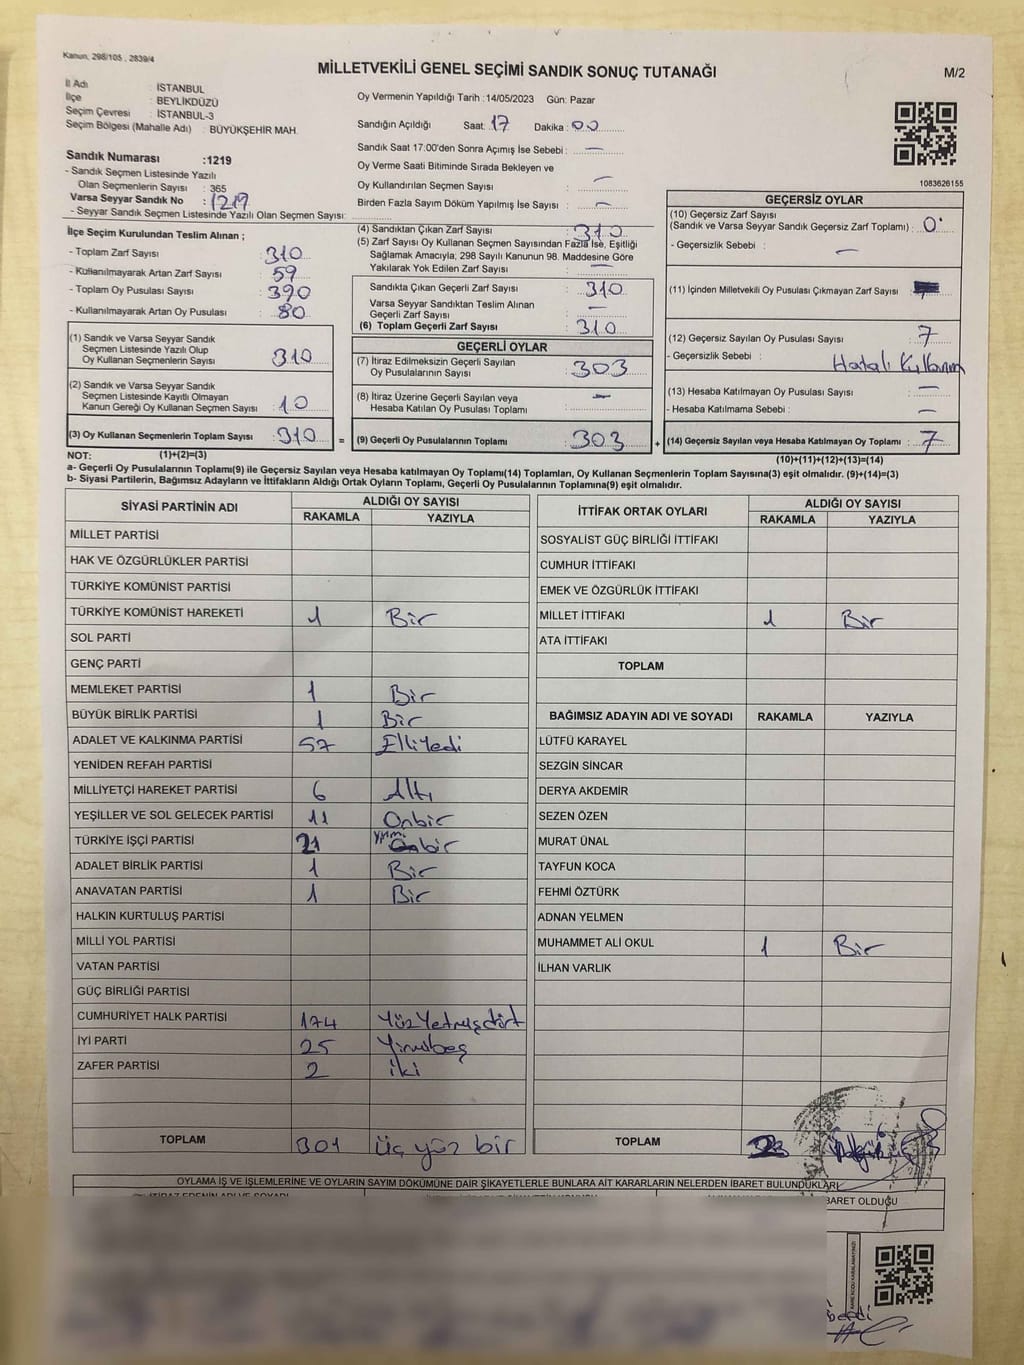 Kanun, 298/105 , 2839/4
MİLLETVEKİLİ GENEL SEÇİMİ SANDIK SONUÇ TUTANAĞI
M/2
İl Adı : İSTANBUL
İlçe : BEYLİKDÜZÜ
Seçim Çevresi : İSTANBUL-3
Seçim Bölgesi (Mahalle Adı) : BÜYÜKŞEHİR MAH.
Sandık Numarası :1219
- Sandık Seçmen Listesinde Yazılı
Olan Seçmenlerin Sayısı : 365
Varsa Seyyar Sandık No : 1219
- Seyyar Sandık Seçmen Listesinde Yazılı Olan Seçmen Sayısı:
Oy Vermenin Yapıldığı Tarih :14/05/2023 Gün: Pazar
Sandığın Açıldığı Saat: 17 Dakika : 00
Sandık Saat 17:00'den Sonra Açımış İse Sebebi : —
Oy Verme Saati Bitiminde Sırada Bekleyen ve
Oy Kullandırılan Seçmen Sayısı : —
Birden Fazla Sayım Döküm Yapılmış İse Sayısı : —
1083626155
İlçe Seçim Kurulundan Teslim Alınan ;
- Toplam Zarf Sayısı : 310
- Kullanılmayarak Artan Zarf Sayısı : 59
- Toplam Oy Pusulası Sayısı : 390
- Kullanılmayarak Artan Oy Pusulası : 80
(1) Sandık ve Varsa Seyyar Sandık
Seçmen Listesinde Yazılı Olup
Oy Kullanan Seçmenlerin Sayısı : 310
(2) Sandık ve Varsa Seyyar Sandık
Seçmen Listesinde Kayıtlı Olmayan
Kanun Gereği Oy Kullanan Seçmen Sayısı : 10
(3) Oy Kullanan Seçmenlerin Toplam Sayısı : 310
(4) Sandıktan Çıkan Zarf Sayısı : 310
(5) Zarf Sayısı Oy Kullanan Seçmen Sayısından Fazla İse, Eşitliği
Sağlamak Amacıyla; 298 Sayılı Kanunun 98. Maddesine Göre
Yakılarak Yok Edilen Zarf Sayısı : —
Sandıkta Çıkan Geçerli Zarf Sayısı : 310
Varsa Seyyar Sandıktan Teslim Alınan
Geçerli Zarf Sayısı : —
(6) Toplam Geçerli Zarf Sayısı : 310
GEÇERLİ OYLAR
(7) İtiraz Edilmeksizin Geçerli Sayılan
Oy Pusulalarının Sayısı : 303
(8) İtiraz Üzerine Geçerli Sayılan veya
Hesaba Katılan Oy Pusulası Toplamı : —
= (9) Geçerli Oy Pusulalarının Toplamı : 303
GEÇERSİZ OYLAR
(10) Geçersiz Zarf Sayısı
(Sandık ve Varsa Seyyar Sandık Geçersiz Zarf Toplamı) : 0
- Geçersizlik Sebebi : —
(11) İçinden Milletvekili Oy Pusulası Çıkmayan Zarf Sayısı :
(12) Geçersiz Sayılan Oy Pusulası Sayısı : 7
- Geçersizlik Sebebi : Hatalı Kullanım
(13) Hesaba Katılmayan Oy Pusulası Sayısı : —
- Hesaba Katılmama Sebebi : —
+ (14) Geçersiz Sayılan veya Hesaba Katılmayan Oy Toplamı : 7
NOT: (1)+(2)=(3) (10)+(11)+(12)+(13)=(14)
a- Geçerli Oy Pusulalarının Toplamı(9) ile Geçersiz Sayılan veya Hesaba katılmayan Oy Toplamı(14) Toplamları, Oy Kullanan Seçmenlerin Toplam Sayısına(3) eşit olmalıdır. (9)+(14)=(3)
b- Siyasi Partilerin, Bağımsız Adayların ve İttifakların Aldığı Ortak Oyların Toplamı, Geçerli Oy Pusulalarının Toplamına(9) eşit olmalıdır.
SİYASİ PARTİNİN ADI ALDIĞI OY SAYISI
RAKAMLA YAZIYLA
MİLLET PARTİSİ
HAK VE ÖZGÜRLÜKLER PARTİSİ
TÜRKİYE KOMÜNİST PARTİSİ
TÜRKİYE KOMÜNİST HAREKETİ 1 Bir
SOL PARTİ
GENÇ PARTİ
MEMLEKET PARTİSİ 1 Bir
BÜYÜK BİRLİK PARTİSİ 1 Bir
ADALET VE KALKINMA PARTİSİ 57 Elliyedi
YENİDEN REFAH PARTİSİ
MİLLİYETÇİ HAREKET PARTİSİ 6 Altı
YEŞİLLER VE SOL GELECEK PARTİSİ 11 Onbir
TÜRKİYE İŞÇİ PARTİSİ 21 Yirmi bir
ADALET BİRLİK PARTİSİ 1 Bir
ANAVATAN PARTİSİ 1 Bir
HALKIN KURTULUŞ PARTİSİ
MİLLİ YOL PARTİSİ
VATAN PARTİSİ
GÜÇ BİRLİĞİ PARTİSİ
CUMHURİYET HALK PARTİSİ 174 YüzYetmişdört
İYİ PARTİ 25 Yirmibeş
ZAFER PARTİSİ 2 iki
TOPLAM 301 üç yüz bir
İTTİFAK ORTAK OYLARI ALDIĞI OY SAYISI
RAKAMLA YAZIYLA
SOSYALİST GÜÇ BİRLİĞİ İTTİFAKI
CUMHUR İTTİFAKI
EMEK VE ÖZGÜRLÜK İTTİFAKI
MİLLET İTTİFAKI 1 Bir
ATA İTTİFAKI
TOPLAM
BAĞIMSIZ ADAYIN ADI VE SOYADI RAKAMLA YAZIYLA
LÜTFÜ KARAYEL
SEZGİN SİNCAR
DERYA AKDEMİR
SEZEN ÖZEN
MURAT ÜNAL
TAYFUN KOCA
FEHMİ ÖZTÜRK
ADNAN YELMEN
MUHAMMET ALİ OKUL 1 Bir
İLHAN VARLIK
TOPLAM
OYLAMA İŞ VE İŞLEMLERİNE VE OYLARIN SAYIM DÖKÜMÜNE DAİR ŞİKAYETLERLE BUNLARA AİT KARARLARIN NELERDEN İBARET BULUNDUKLARI
BARET OLDUĞU